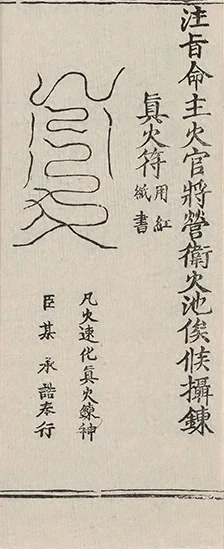 注旨命主火官將營衛火池俟候攝鍊
眞火符
用紅
紙書
凡火速化眞火鍊神
臣某承誥奉行